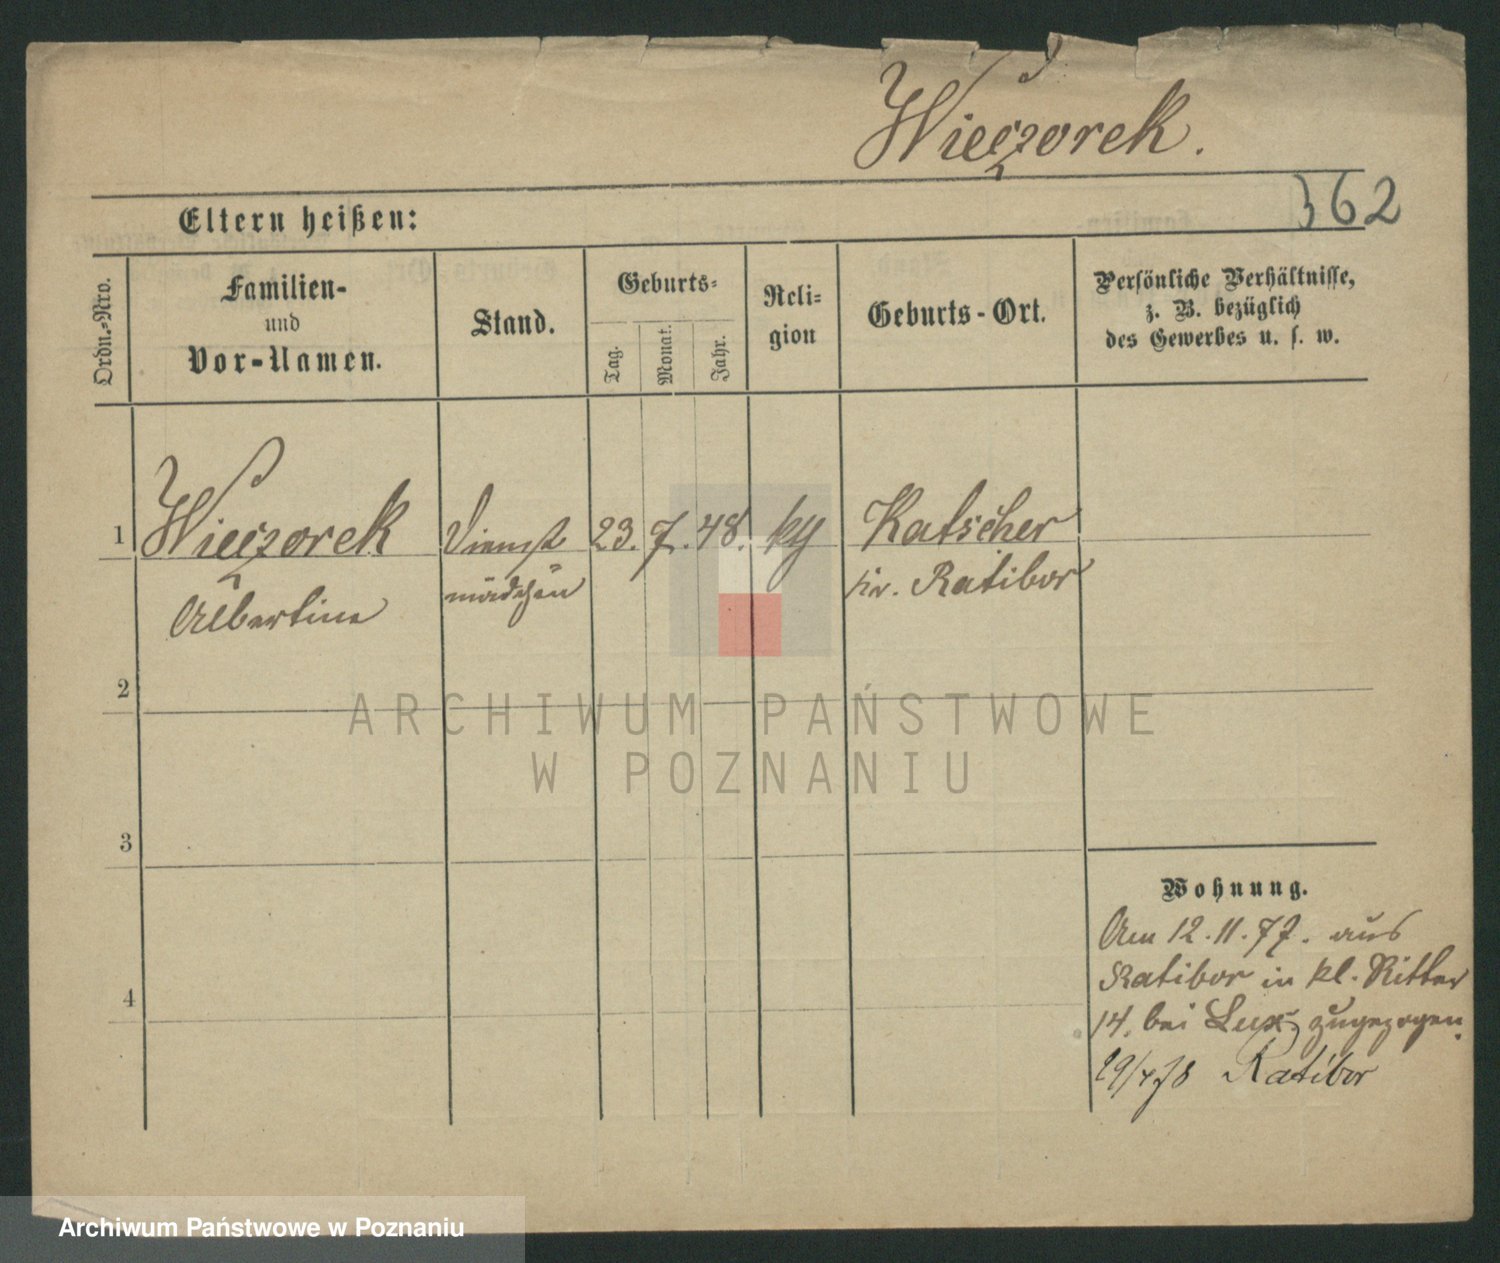 Wieczorek.
362
Eltern heißen:
Ordn.-Nro.
Familien-
und
Vor-Namen.
Stand.
Geburts-
Tag.
Monat.
Jahr.
Reli-
gion
Geburts-Ort.
Persönliche Verhältnisse,
z. B. bezüglich
des Gewerbes u. s. w.
1
Wieczorek
Albertine
Dienst
mädchen
23. 7. 48.
Katscher
Kr. Ratibor
2
3
4
Wohnung.
Am 12.11.77. aus
Ratibor in kl. Ritter
14, bei Lux zugezogen.
29/4 78 Ratibor
ARCHIWUM PAŃSTWOWE
W POZNANIU
Archiwum Państwowe w Poznaniu